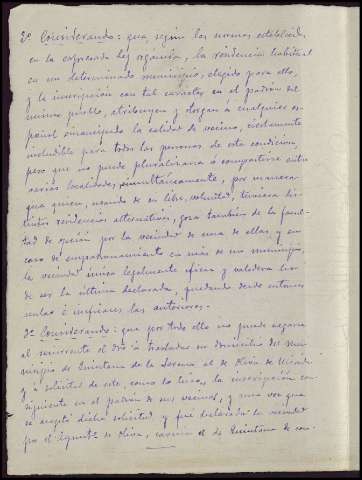 2º Considerando: que, según las normas establecidas
en la expresada ley orgánica, la residencia habitual
en un determinado municipio, elegido para ello,
y la inscripción con tal carácter en el padrón del
mismo pueblo, atribuyen y otorgan á cualquier es-
pañol emancipado la calidad de vecino, ciertamente
ineludible para todas las personas de esta condición,
pero que no puede pluralizarse ó compartirse entre
varias localidades, simultáneamente, por manera
que quien, usando de su libre voluntad, tuviera dis-
tintas residencias alternativas, goza también de la facul-
tad de opción por la vecindad de una de ellas, y en
caso de empadronamiento en más de un municipio,
la vecindad única legalmente eficaz y valedera ha
de ser la última declarada, quedando desde entonces
nulas é ineficaces las anteriores.
3º Considerando: que por todo ello no puede negarse
al recurrente el dro á trasladar su domicilio del mu-
nicipio de Quintana de la Serena al de Oliva de
y á solicitud de este, como lo hizo, la inscripción con-
siguiente en el padrón de sus vecinos, y una vez que
se aceptó dicha solicitud y fué declarada la vecindad
por el Ayuntº de Oliva, el de Quintana de con-